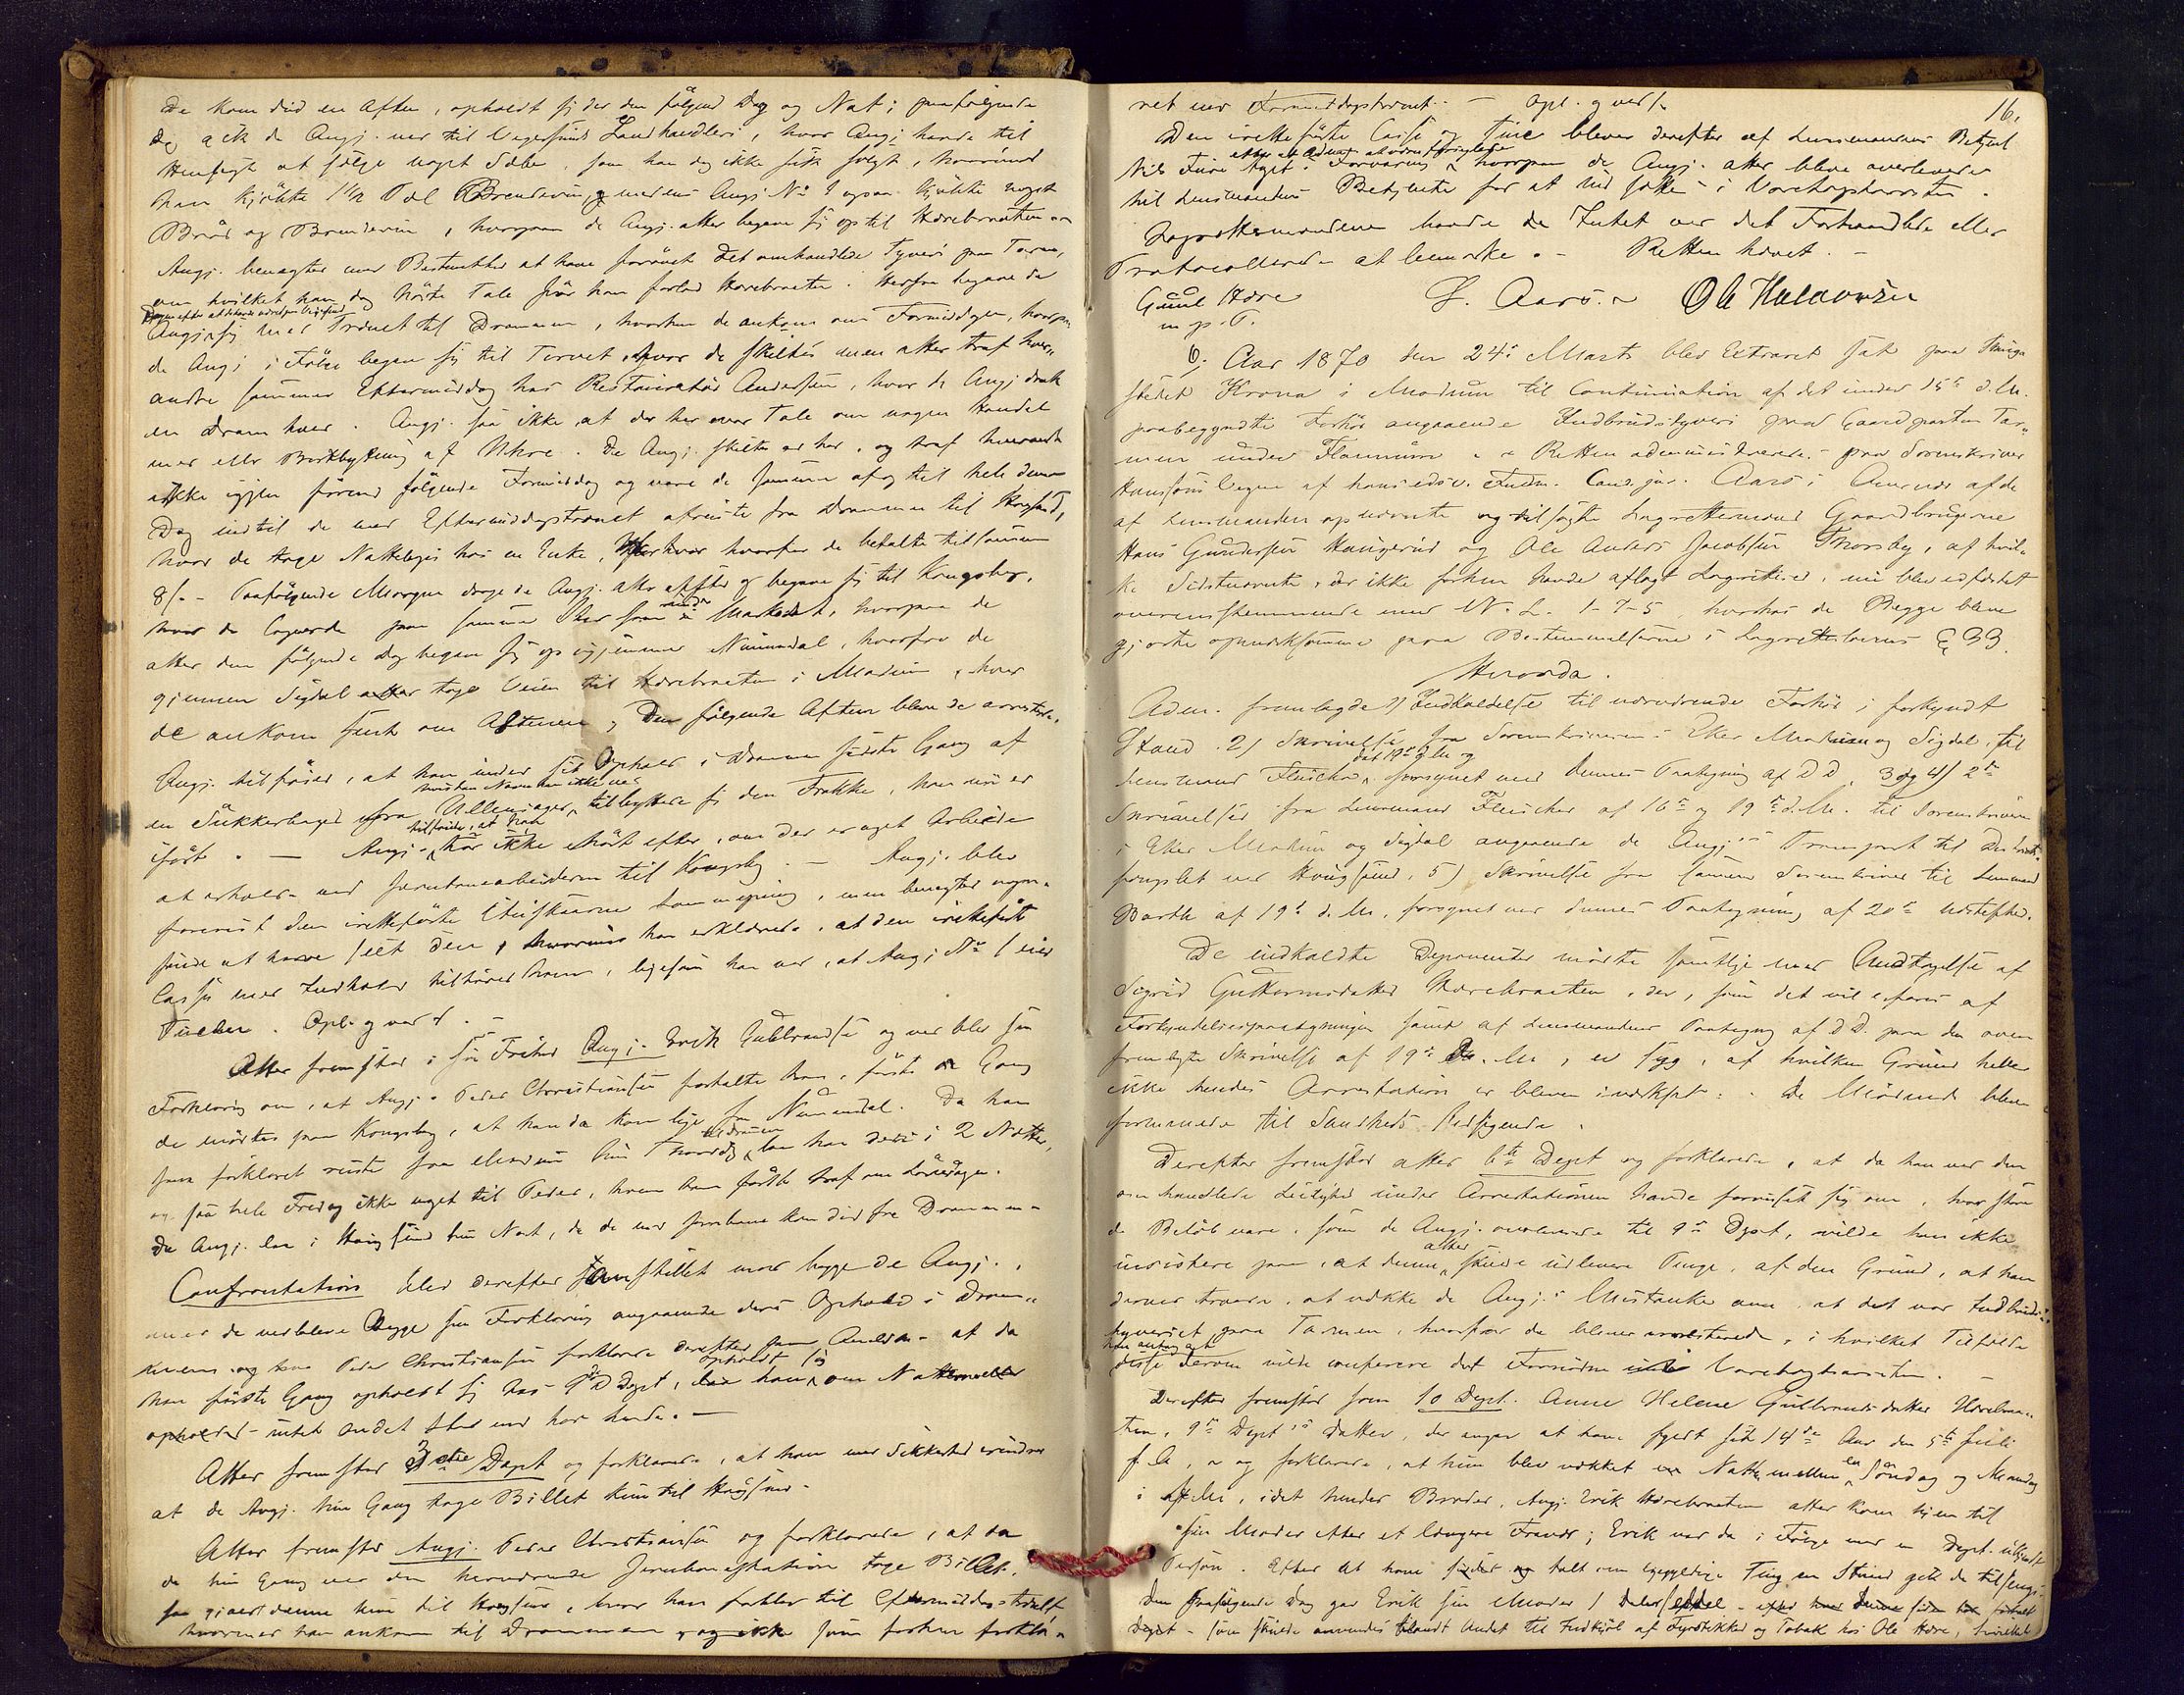 De kom did en Aften, opholdt sig der den følgende Dag og Nat; paafølgende
Dag gik de Angj. ned til Vegersunds Landhandleri, hvor Angj. havde til
Hensigt at sælge noget Sæbe, som han dog ikke fik solgt, hvorimod
han kjøbte 1½ Pæl Brændeviin, medens Angj. No 1 ogsaa kjøbte noget
Brød og Brændeviin, hvorpaa de Angj. atter begave sig op til Horebraaten. –
Angj. benægter med Bestemthed at have forøvet det omhandlede Tyveri paa Tarmen,
om hvilket han dog hørte Tale før han forlod Horebraaten. Herfra begave de
Angj. sig med Trænet til Drammen, hvorhen de ankom om Formiddagen, hvorpaa
de Angj. i Følge begav sig til Torvet, hvor de skiltes men atter traf hver-
andre samme Eftermiddag hos Restauratør Andersen, hvor de Angj. drak
en Dram hver. Angj. saa ikke, at der her var Tale om nogen Handel
med eller Bortbytning af Uhre. De Angj. skiltes ad her, og traf hverandre
ikke igjen førend følgende Formiddag og vare de sammen af og til hele denne
Dag indtil de med Eftermiddagstrænet afreiste fra Drammen til Haugsund,
hvor de toge Natteleie hos en Enke, hvorfor de betalte tilsammen
8 s. – Paafølgende Morgen droge de Angj. atter afsted og begave sig til Kongsberg,
hvor de logerede paa samme Sted som under Markedet, hvorpaa de
atter den følgende Dag begave sig op igjennem Numedal, hvorfra de
gjennem Sigdal atter toge Veien til Horebraaten i Modum, hvor
de ankom sent om Aftenen; Den følgende Aften bleve de arresterede.
Angj. tilføier, at han under sit Ophold i Drammen sidste Gang af
hvis Navn han ikke ved
en Sukkerbager fra Ullensager tilbyttede sig den Frakke, han nu er
tilføier, at han
iført. – Angj. har ikke hørt efter, om der er noget Arbeide
at erholde ved Jernbanearbeiderne til Kongsberg. – Angj. blev
forevist den iretteførte Lommepung, men benægter nogen-
sinde at have seet den, hvorimod han erklærede, at den iretteførte
Casse med Indhold tilhører ham, ligesom han ved, at Angj. No 1 eier
Tinen. Opl. og ved t.
Atter fremstod i sin Frihed Angj. Erik Gulbrandsen og ved blev sin
Forklaring om, at Angj. Peder Christiansen fortalte ham, første Gang
de mødtes paa Kongsberg, at han da kom lige fra Numedal. Da han
til Drammen
som forklaret reiste fra Modum hin Thorsdag, laa han der i 2 Nætter,
og saa hele Fredag ikke noget til Peder, hvem han først traf om Lørdagen.
De Angj. laa i Haugsund hin Nat, da de med Jernbanen kom did fra Drammen.
Confrontation blev derefter anstillet med begge de Angj.,
men de vedbleve Begge sin Forklaring angaaende deres Ophold i Dram-
men og som Peder Christiansen forklarede derefter paa Anledn. at da
opholdt sig
han første Gang opholdt sig hos 9de Dept, han om Natten
intet andet Sted end hos hende. –
Atter fremstod 3die Dept og forklarede, at han med Sikkerhed erindrer
at de Angj. hin Gang toge Billet kun til Haugsund.
Atter fremstod Angj. Peder Christiansen og forklarede, at da
de hin Gang ved den herværende Jernbanestation toge Billet,
saa gjaldt denne kun til Haugsund, hvor han forblev til Eftermiddagstoget
hvormed han ankom til Drammen, og ikke som forhen forkla-
16.
ret med Formiddagstrænet. – Opl. og ved t.
Den iretteførte Casse og Tine bleve derefter af Lensmandens Betjent
Nils Fure taget i Forvaring hvorpaa de Angj. atter bleve overleverede
til Lensmandens Betjente for at indsættes i Varetægtsarresten.
Lagrettemændene havde da Intet ved det Forhandlede eller
Protocollerede at bemærke. – Retten hævet. –
Guul Hore
m. p. P.
L. Aars
Ole Halvorsen
6, Aar 1870 den 24de Marts blev Extraret sat paa Thing-
stedet Krona i Modum til Continuation af det under 15de d. M.
paabegyndte Forhør angaaende Indbrudstyveri paa Gaardparten Tar-
men under Flannum. – Retten administreredes paa Sorenskriver
Hansens Vegne af hans edsv. Fuldm. Cand. jur. Aars i Overvær af de
af Lensmanden opnævnte og tilsagte Lagrettemænd Gaardbrugerne
Hans Gundersen Haugerud og Ole Anders Jacobsen Thorsby, af hvil-
ke Sidstnævnte, der ikke forhen havde aflagt Lagretteed, nu blev edfæstet
overensstemmende med N. L. 1-7-5 hvorhos de Begge bleve
gjorte opmærksomme paa Bestemmelserne i Lagretteloven § 33.
Hvorda.
Adm. fremlagde 1) Indkaldelse til nærværende Forhør i forkyndt
Stand. 2) Skrivelse fra Sorenskriveren i Eker Modum og Sigdal til
dat. 19de d. M. og
Lensmand Fleischer, forsynet med dennes Paategning af D. D. 3 og 4) 2de
Skrivelser fra Lensmand Fleischer af 16de og 19de d. M. til Sorenskriveren
i Eker Modum og Sigdal angaaende de Angj.s Transport til Districts-
fængslet ved Haugsund, 5) Skrivelse fra samme Sorenskriver til Lensmand
Barth af 19de d. M., forsynet med dennes Paategning af 20de næstefter.
De indkaldte Deponenter mødte samtlige med Undtagelse af
Sigrid Guttormsdatter Horebraaten, der, som det vil erfares af
Forkyndelsespaategningen samt af Lensmandens Paategning af D. D. paa den oven
fremlagte Skrivelse af 19de d. M., er syg, af hvilken Grund heller
ikke hendes Arrestation er bleven iværksat. – De Mødende bleve
formanede til Sandheds Udsigende.
Derefter fremstod atter 6te Dept og forklarede, at da han ved den
omhandlede Leilighed under Arrestationen havde forvisset sig om, hvor store
de Beløb vare, som de Angj. overleverede til 9de Dept, vilde han ikke
atter
insistere paa, at denne skulde udlevere Penge, af den Grund, at han
derved troede, at vække de Angj.s Mistanke om, at det var Indbruds-
tyveriet paa Tarmen, hvorfor de bleve arresterede, i hvilket Tilfælde
han antog at
disse derom vilde conferere det Fornødne i Varetægtsarresten. –
Derefter fremstod som 10 Dept. Anne Helene Gulbrandsdatter Horebraa-
ten, 9de Dept.s Datter, der angav at have fyldt sit 14de Aar den 5te Juli
f. A., og forklarede, at hun blev vækket Natten mellem en Søndag og Mandag
i f. M., idet hendes Broder, Angj. Erik Horebraaten atter kom hjem til
sin Moder efter et længere Fravær; Erik var da i Følge med en Dept. ubekjendt
Person. Efter at have siddet og talt om ligegyldige Ting en Stund gik de tilsengs.
Den paafølgende Dag gav Erik sin Moder 1 Dalerseddel
– som skulde anvendes blandt Andet til Indkjøb af Fyrstikker og Tobak hos Ole Hore,